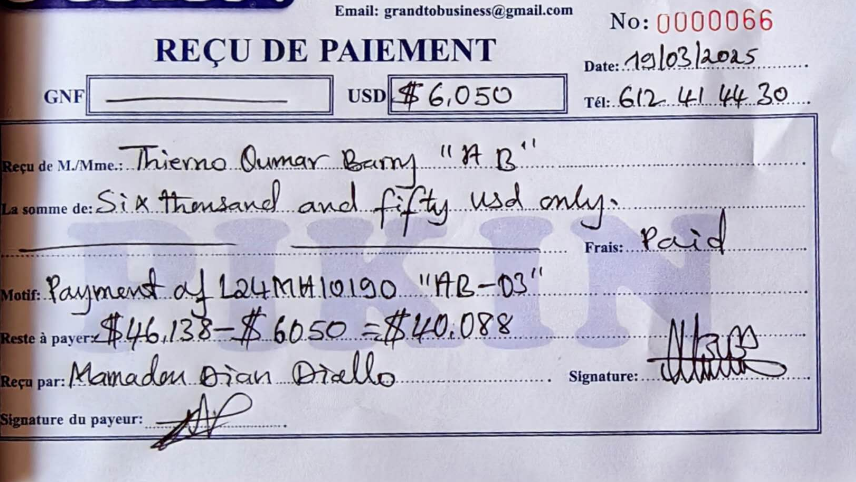 Email: grandtobusiness@gmail.com
No: 0000066
REÇU DE PAIEMENT
Date: 19/03/2025
GNF
USD $6,050
Tél: 612 41 44 30
Reçu de M./Mme.: Thierno Oumar Barry "AB"
La somme de: Six thousand and fifty usd only.
Frais: Paid
PIKIN
Motif: Payment of L24MH10190 "AB-03"
Reste à payer: $46,138-$6050=$40,088
Reçu par: Mamadou Dian Diallo
Signature:
Signature du payeur: